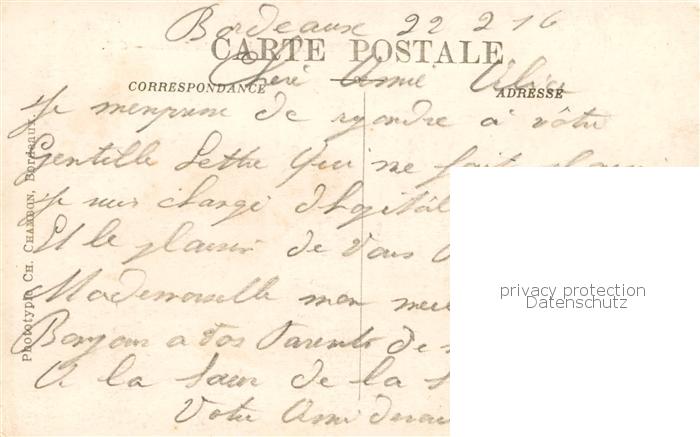 Bordeaux 22 2 16
CARTE POSTALE
Chère Amie
CORRESPONDANCE
ADRESSE
Je menprese de ryondre a vôtre
Gentille Lettre Qui me fait
Je suis changé dhopitâl
Et le plaisir de Vous
Mademoiselle mon
Bonjour a Vos Parents de
A la Sœur de la
Votre Ami
Phototypie CH. CHAMBON, Bordeaux.
privacy protection
Datenschutz